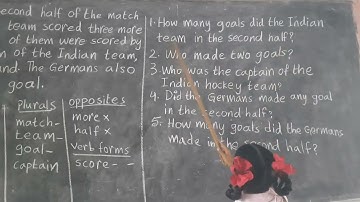 econd half of the match
team scored three more
of them were scored by
n of the Indian team,
and. The Germans also
goal.
Plurals
match-
team-
goal-
captain
opposites
more x
half x
verb forms
score- -
1. How many goals did the Indian
team in the second half?
2. Who made two goals?
3. Who was the captain of the
Indian hockey team
4. Did the Germans made any goal
in the second half?
5. How many goals did the Germans
made in the second half?